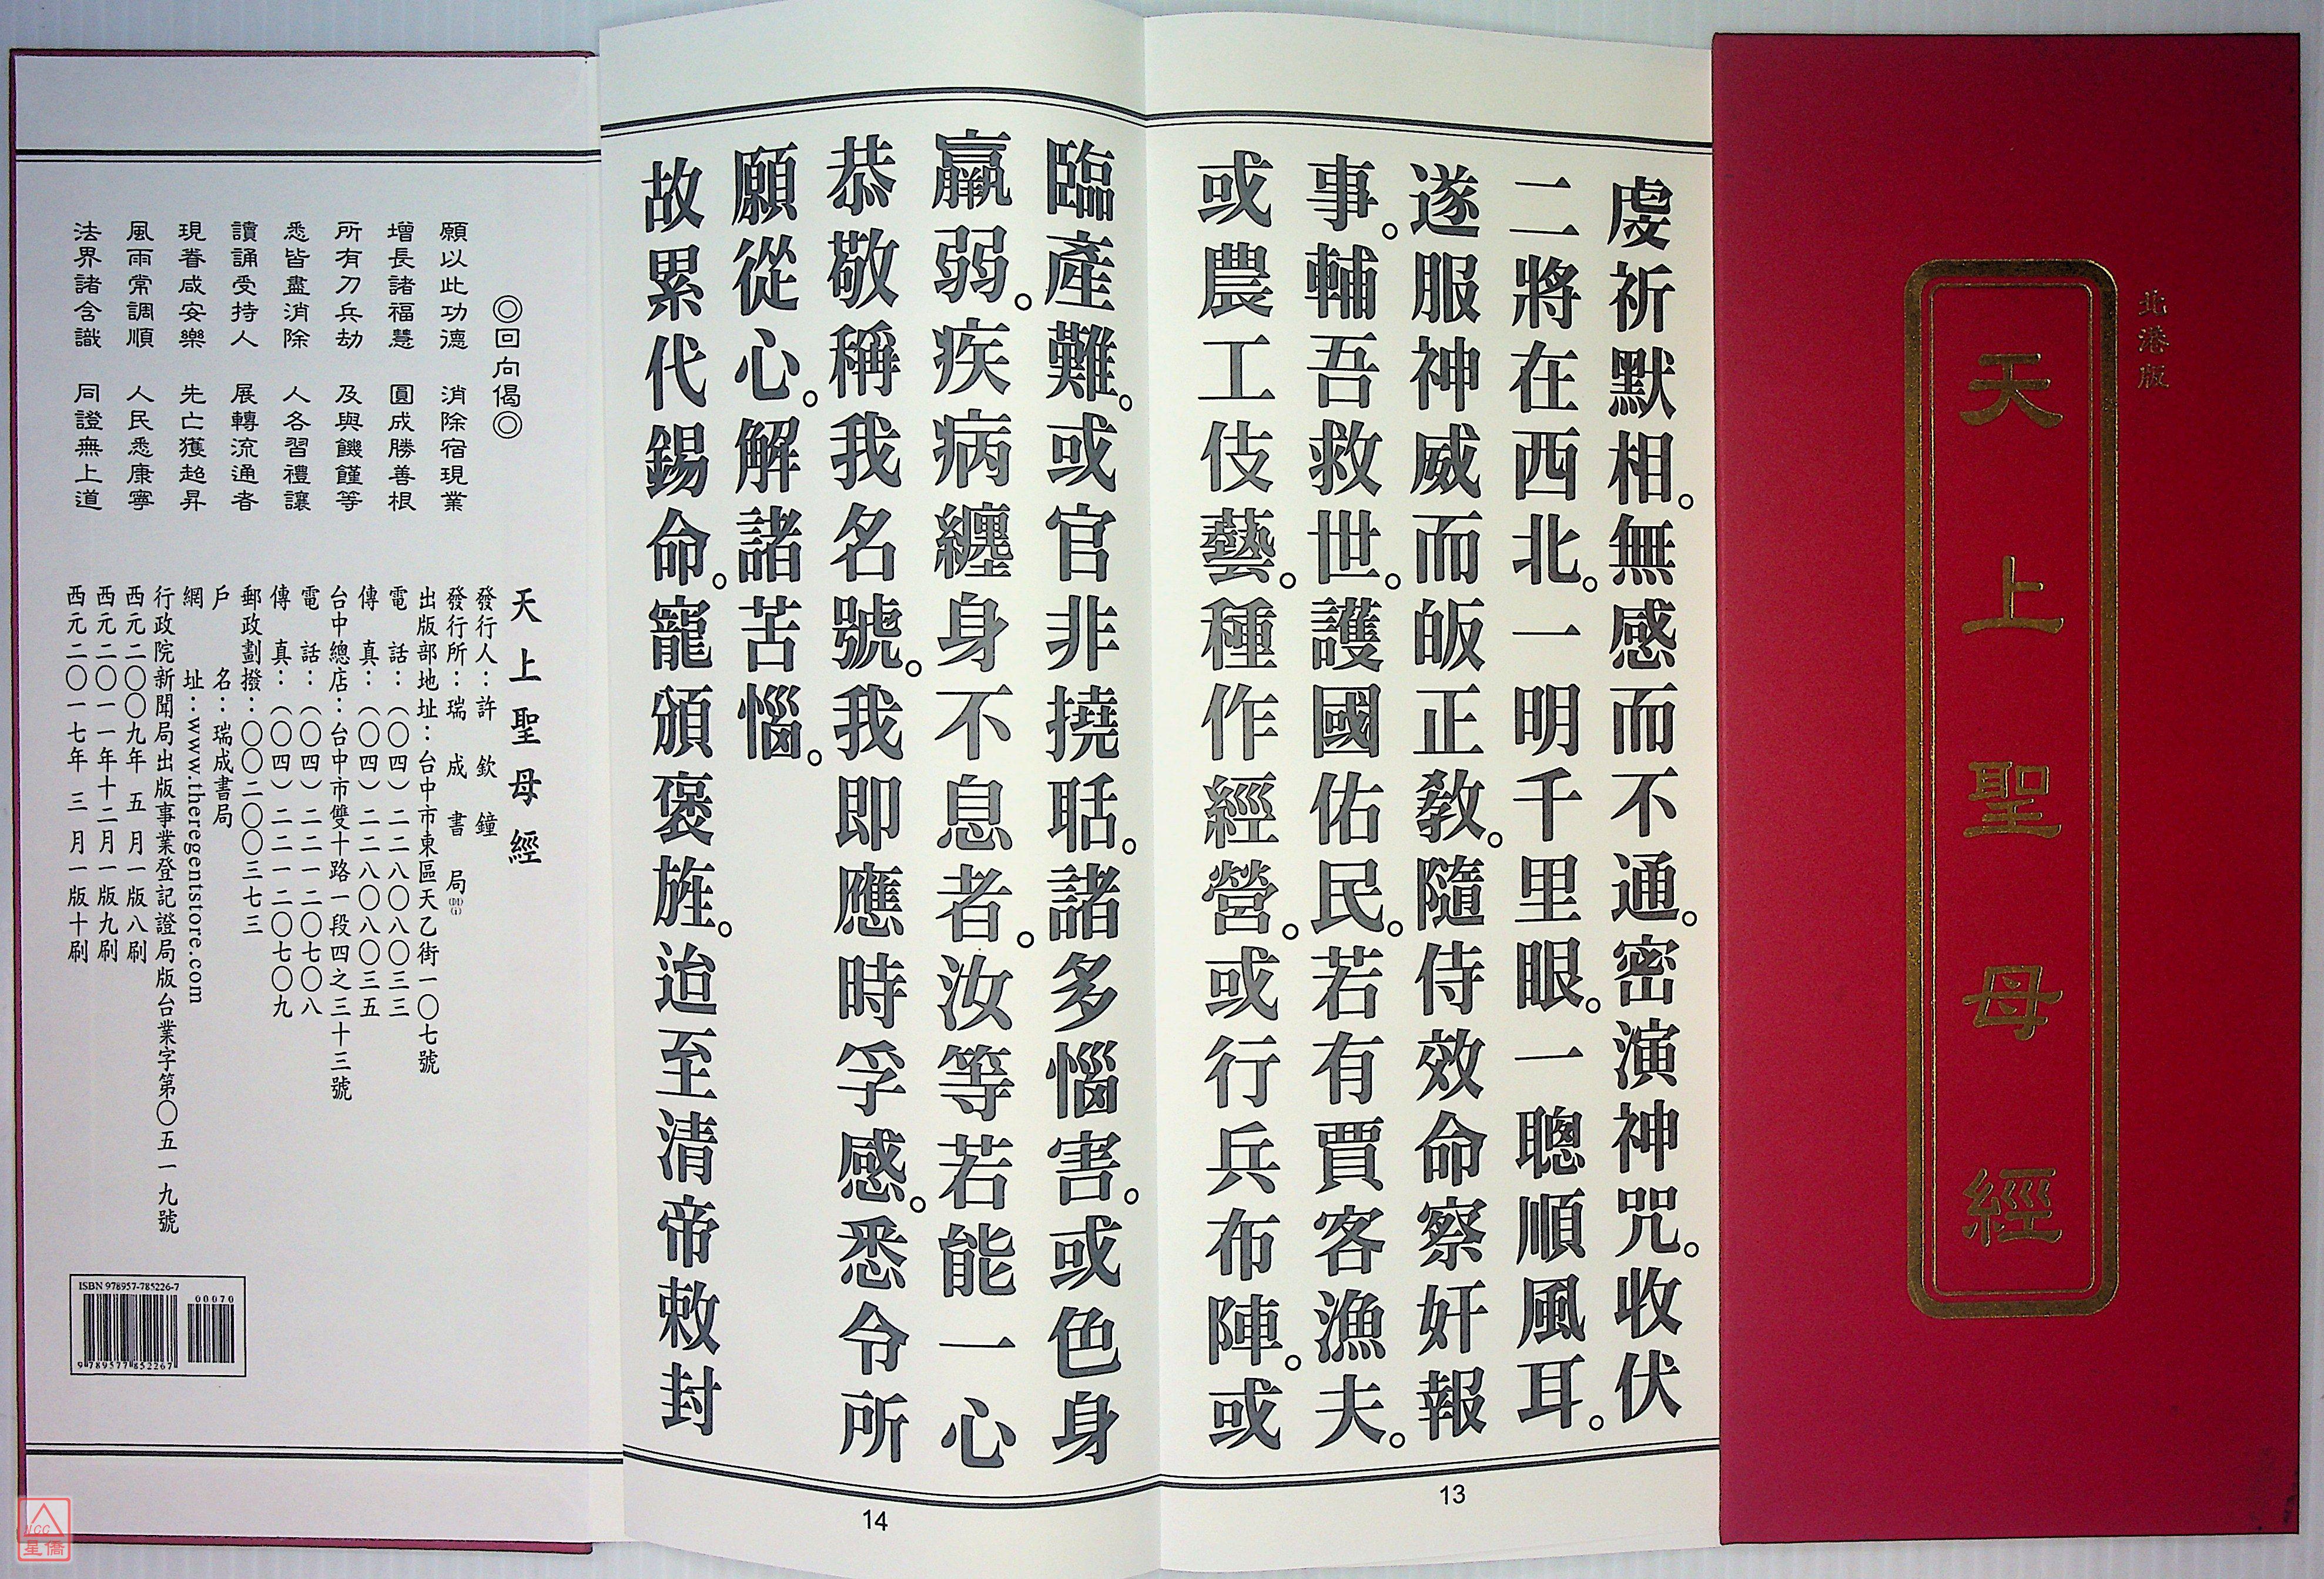 北港版
天上聖母經
虔祈默相。無感而不通。密演神咒。收伏
二將在西北。一明千里眼。一聰順風耳。
遂服神威而皈正教。隨侍效命察奸報
事。輔吾救世。護國佑民。若有賈客漁夫。
或農工伎藝。種作經營。或行兵布陣。或
13
臨產難。或官非撓聒。諸多惱害。或色身
羸弱。疾病纏身不息者。汝等若能一心
恭敬稱我名號。我即應時孚感。悉令所
願從心。解諸苦惱。
故累代錫命。寵頒褒旌。迨至清帝敕封
14
◎回向偈◎
願以此功德　消除宿現業
增長諸福慧　圓成勝善根
所有刀兵劫　及與饑饉等
悉皆盡消除　人各習禮讓
讀誦受持人　展轉流通者
現眷咸安樂　先亡獲超昇
風雨常調順　人民悉康寧
法界諸含識　同證無上道
天上聖母經
發行人：許欽鐘
發行所：瑞成書局
出版部地址：台中市東區天乙街一〇七號
電話：（〇四）二二八〇八〇三三
傳真：（〇四）二二八〇八〇三五
台中總店：台中市雙十路一段四之三十三號
電話：（〇四）二二一二〇七〇八
傳真：（〇四）二二一二〇七〇九
郵政劃撥：〇〇二〇〇三七三
戶名：瑞成書局
網址：www.theregentstore.com
行政院新聞局出版事業登記證局版台業字第〇五一九號
西元二〇〇九年五月一版八刷
西元二〇一一年十二月一版九刷
西元二〇一七年三月一版十刷
ISBN 978957-785226-7
00070
9 789577 852267
NCC
星僑